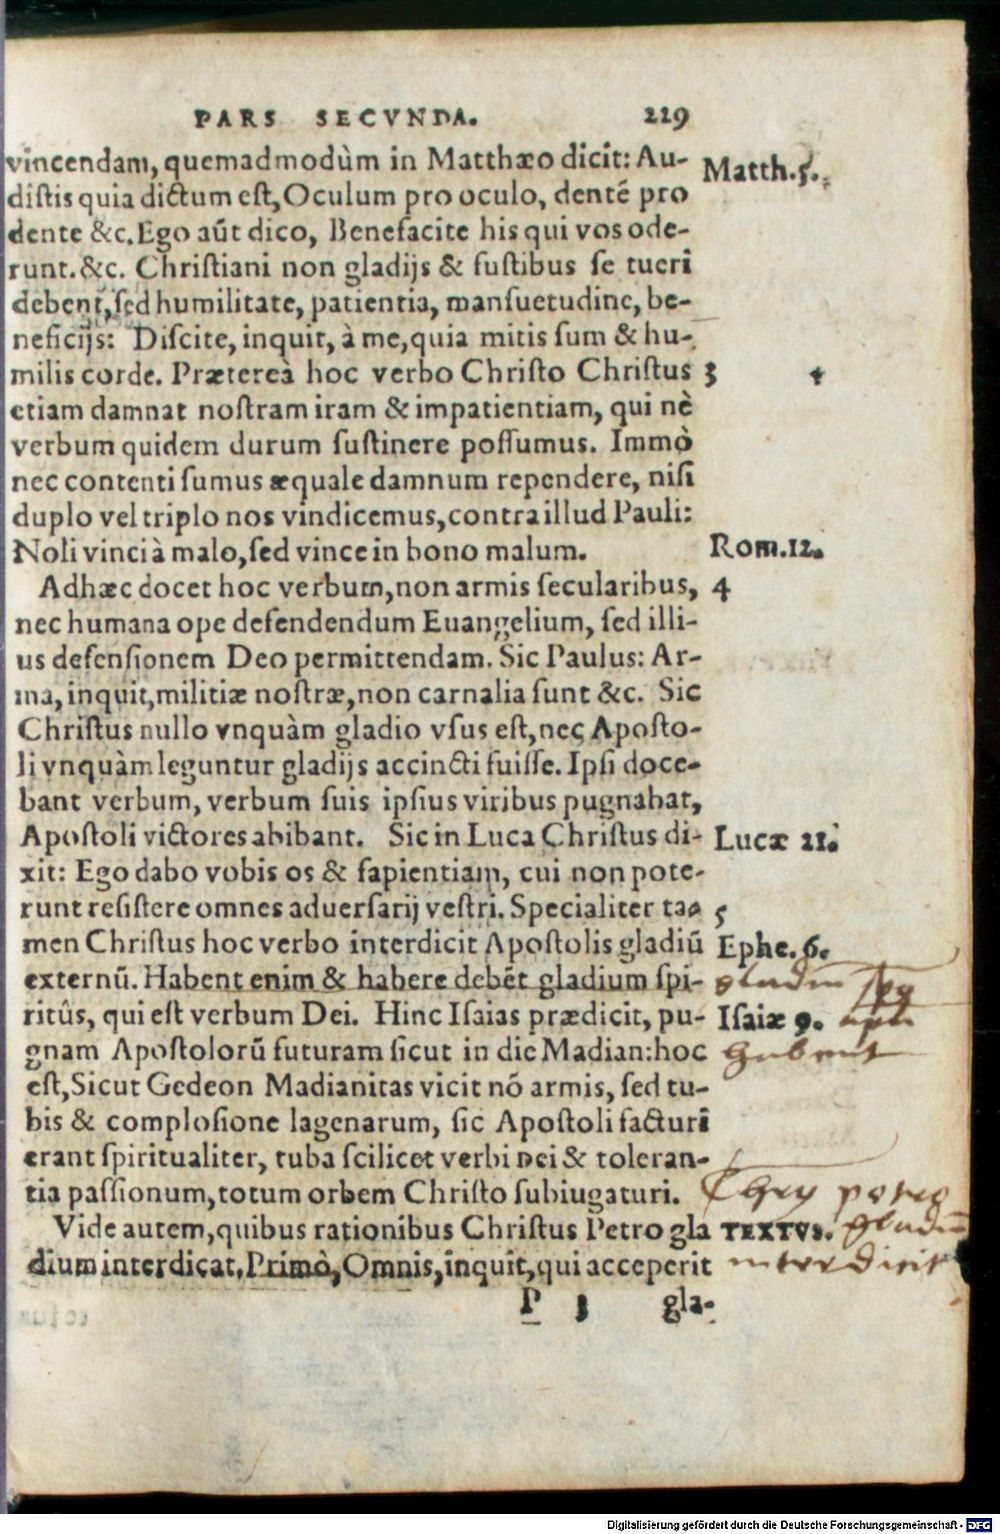 PARS SECVNDA. 229
vincendam, quemadmodùm in Matthæo dicit: Au-
distis quia dictum est, Oculum pro oculo, dentē pro
dente &c. Ego aūt dico, Benefacite his qui vos ode-
runt. &c. Christiani non gladijs & fustibus se tueri
debent, sed humilitate, patientia, mansuetudine, be-
neficijs: Discite, inquit, à me, quia mitis sum & hu-
milis corde. Præterea hoc verbo Christo Christus
etiam damnat nostram iram & impatientiam, qui nè
verbum quidem durum sustinere possumus. Immò
nec contenti sumus æquale damnum rependere, nisi
duplo vel triplo nos vindicemus, contra illud Pauli:
Noli vinci à malo, sed vince in bono malum.
Adhæc docet hoc verbum, non armis secularibus,
nec humana ope defendendum Euangelium, sed illi-
us defensionem Deo permittendam. Sic Paulus: Ar-
ma, inquit, militiæ nostræ, non carnalia sunt &c. Sic
Christus nullo vnquàm gladio vsus est, nec Aposto-
li vnquàm leguntur gladijs accincti fuisse. Ipsi doce-
bant verbum, verbum suis ipsius viribus pugnabat,
Apostoli victores abibant. Sic in Luca Christus di-
xit: Ego dabo vobis os & sapientiam, cui non pote-
runt resistere omnes aduersarij vestri. Specialiter ta-
men Christus hoc verbo interdicit Apostolis gladiū
externū. Habent enim & habere debēt gladium spi-
ritûs, qui est verbum Dei. Hinc Isaias prædicit, pu-
gnam Apostolorū futuram sicut in die Madian: hoc
est, Sicut Gedeon Madianitas vicit nō armis, sed tu-
bis & complosione lagenarum, sic Apostoli facturi
erant spiritualiter, tuba scilicet verbi Dei & toleran-
tia passionum, totum orbem Christo subiugaturi.
Vide autem, quibus rationibus Christus Petro gla
dium interdicat. Primò, Omnis, inquit, qui acceperit
P 3 gla-
Matth. 5.
3
Rom. 12.
4
Lucæ 21.
5
Ephe. 6.
gladiu
Isaiæ 9.
habent
TEXTVS. gladiu
interdicit
Digitalisierung gefördert durch die Deutsche Forschungsgemeinschaft - DFG